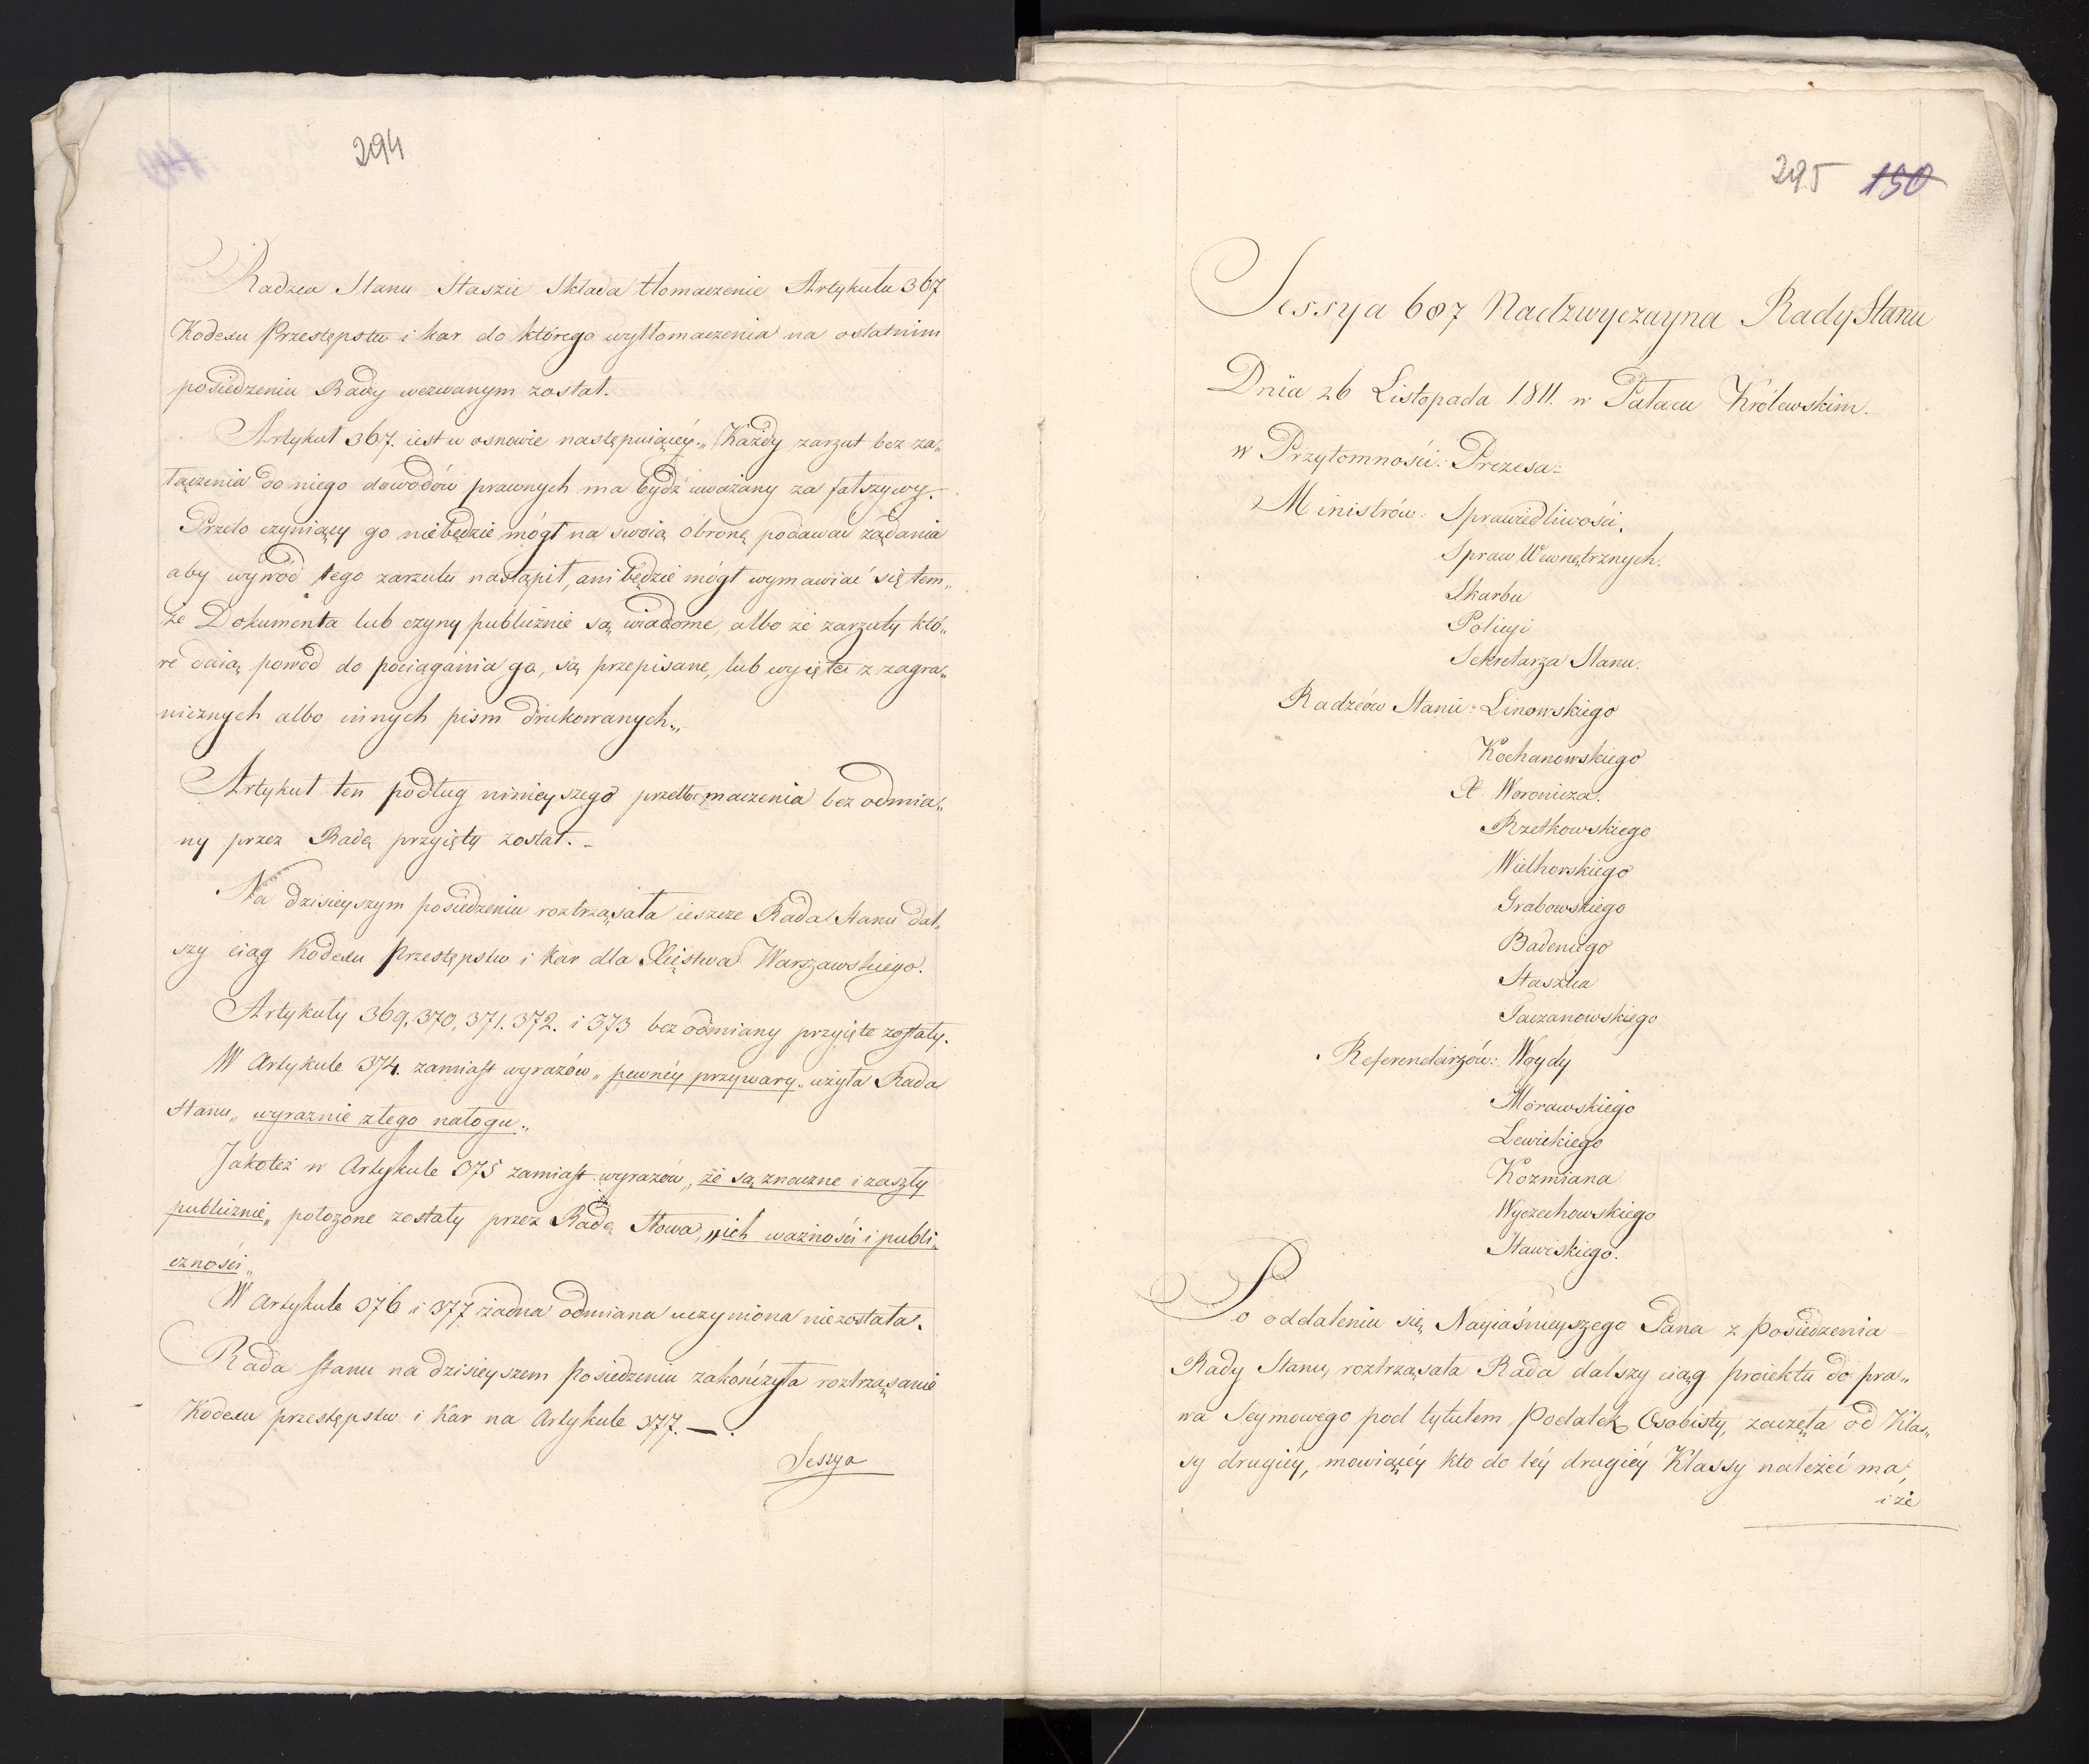 294
Radzca Stanu Staszic Składa tłomaczenie Artykułu 367
Kodexu Przestępstw i kar do którego wytłomaczenia na ostatnim
posiedzeniu Rady wezwanym został.
Artykuł 367. iest w osnowie następuiącéy. „Każdy zarzut bez za„
łączenia do niego dowodów prawnych ma bydź uważany za fałszywy.
Przeto czyniący go niebędzie mógł na swoią obronę podawać żądania
aby wywód tego zarzutu nastąpił, ani będzie mógł wymawiać się tem„
że Dokumenta lub czyny publicznie są wiadome, albo że zarzuty któ„
re daią powód do pociągania go, są przepisane, lub wyięte z zagra„
nicznych albo innych pism drukowanych.„
Artykuł ten podług ninieyszego przetłomaczenia bez odmia„
ny przez Radę przyięty został. –
Na dzisieyszym posiedzeniu roztrząsała ieszcze Rada Stanu dal„
szy ciąg Kodexu Przestępstw i Kar dla Xięstwa Warszawskiego.
Artykuły 369, 370, 371. 372. i 373 bez odmiany przyięte zostały.
W Artykule 374. zamiast wyrazów „pewnéy przywary„ użyła Rada
Stanu „wyraznie złego nałogu„
Jakoteż w Artykule 375 zamiast wyrazów „że są znaczne i zaszły
publicznie„ położone zostały przez Radę Słowa, „ich ważności i publi„
czności„
W Artykule 376 i 377 żadna odmiana uczyniona niezostała.
Rada Stanu na dzisieyszem Posiedzeniu zakończyła roztrząsanie
Kodexu przestępstw i Kar na Artykule 377. — .
Sessya
295 150
Sessya 607 Nadzwyczayna Rady Stanu
Dnia 26 Listopada 1811. w Pałacu Królewskim.
w Przytomności: Prezesa:
Ministrów: Sprawiedliwości.
Spraw Wewnętrznych.
Skarbu
Policyi
Sekretarza Stanu.
Radzców Stanu: Linowskiego
Kochanowskiego
X. Woronicza.
Rzetkowskiego
Wielhorskiego
Grabowskiego
Badeniego
Staszica
Taczanowskiego
Referendarzów: Woydy
Morawskiego
Lewickiego
Kozmiana
Wyczechowskiego
Stawiskiego.
Po oddaleniu się Nayiaśnieyszego Pana z Posiedzenia
Rady Stanu, roztrząsała Rada dalszy ciąg proiektu do pra„
wa Seymowego pod tytułem Podatek Osobisty, zaczęta od Klas„
sy drugiéy, mowiącéy kto do téy drugiéy Klassy należéć ma,
i że